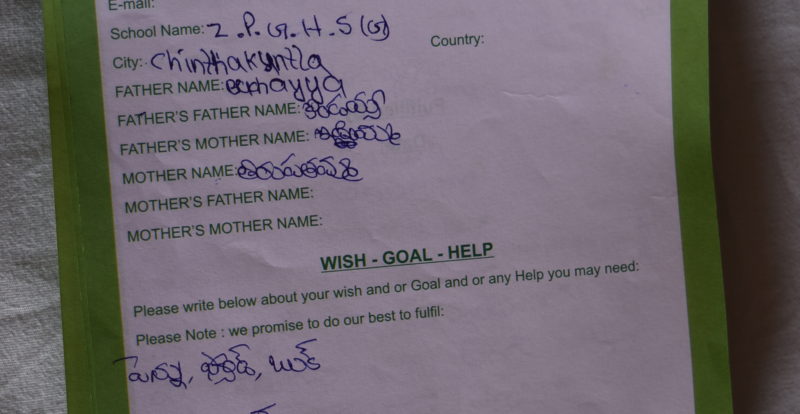 E-mail:
School Name: Z.P.G.H.S (G)
Country:
City: Chinthakuntla
FATHER NAME:
FATHER'S FATHER NAME:
FATHER'S MOTHER NAME:
MOTHER NAME: తిరుపతమ్మ
MOTHER'S FATHER NAME:
MOTHER'S MOTHER NAME:
WISH - GOAL - HELP
Please write below about your wish and or Goal and or any Help you may need:
Please Note : we promise to do our best to fulfil:
పెన్ను, బుక్